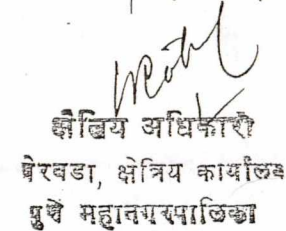 क्षेत्रिय अधिकारी
येरवडा, क्षेत्रिय कार्यालय
पुणें महानगरपालिका